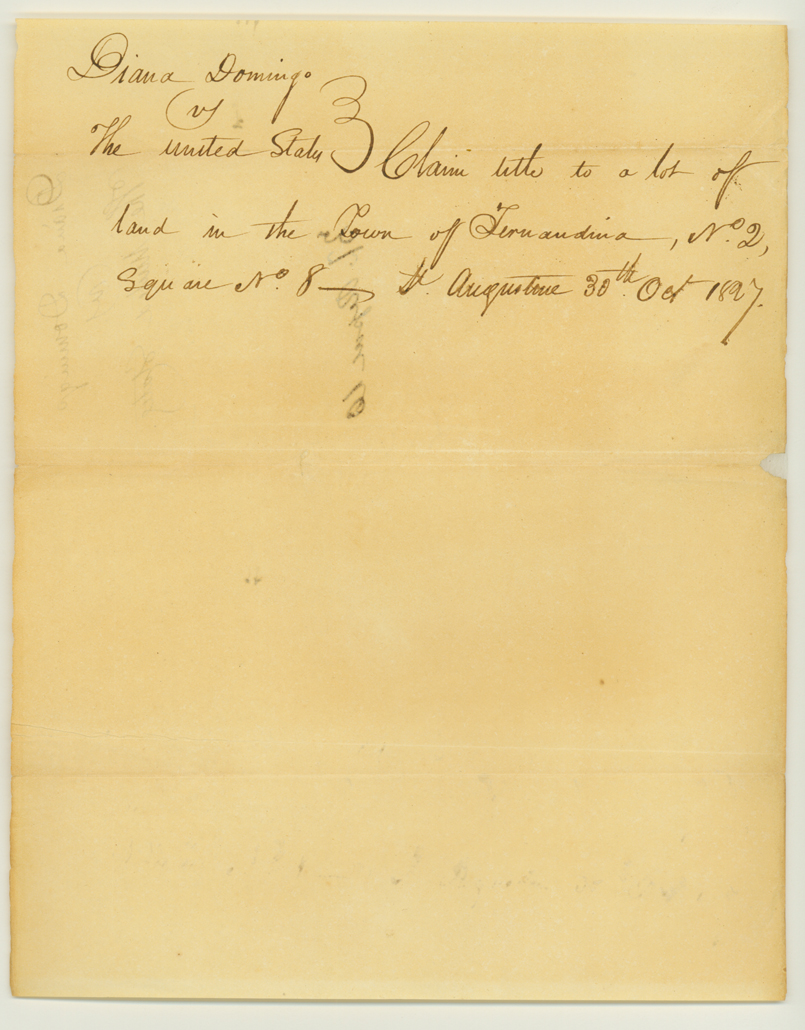 Diana Domingo
vs
The United States } Claim title to a lot of
land in the Town of Fernandina, No. 2,
Square No. 8 — St. Augustine 30th. Oct 1827.